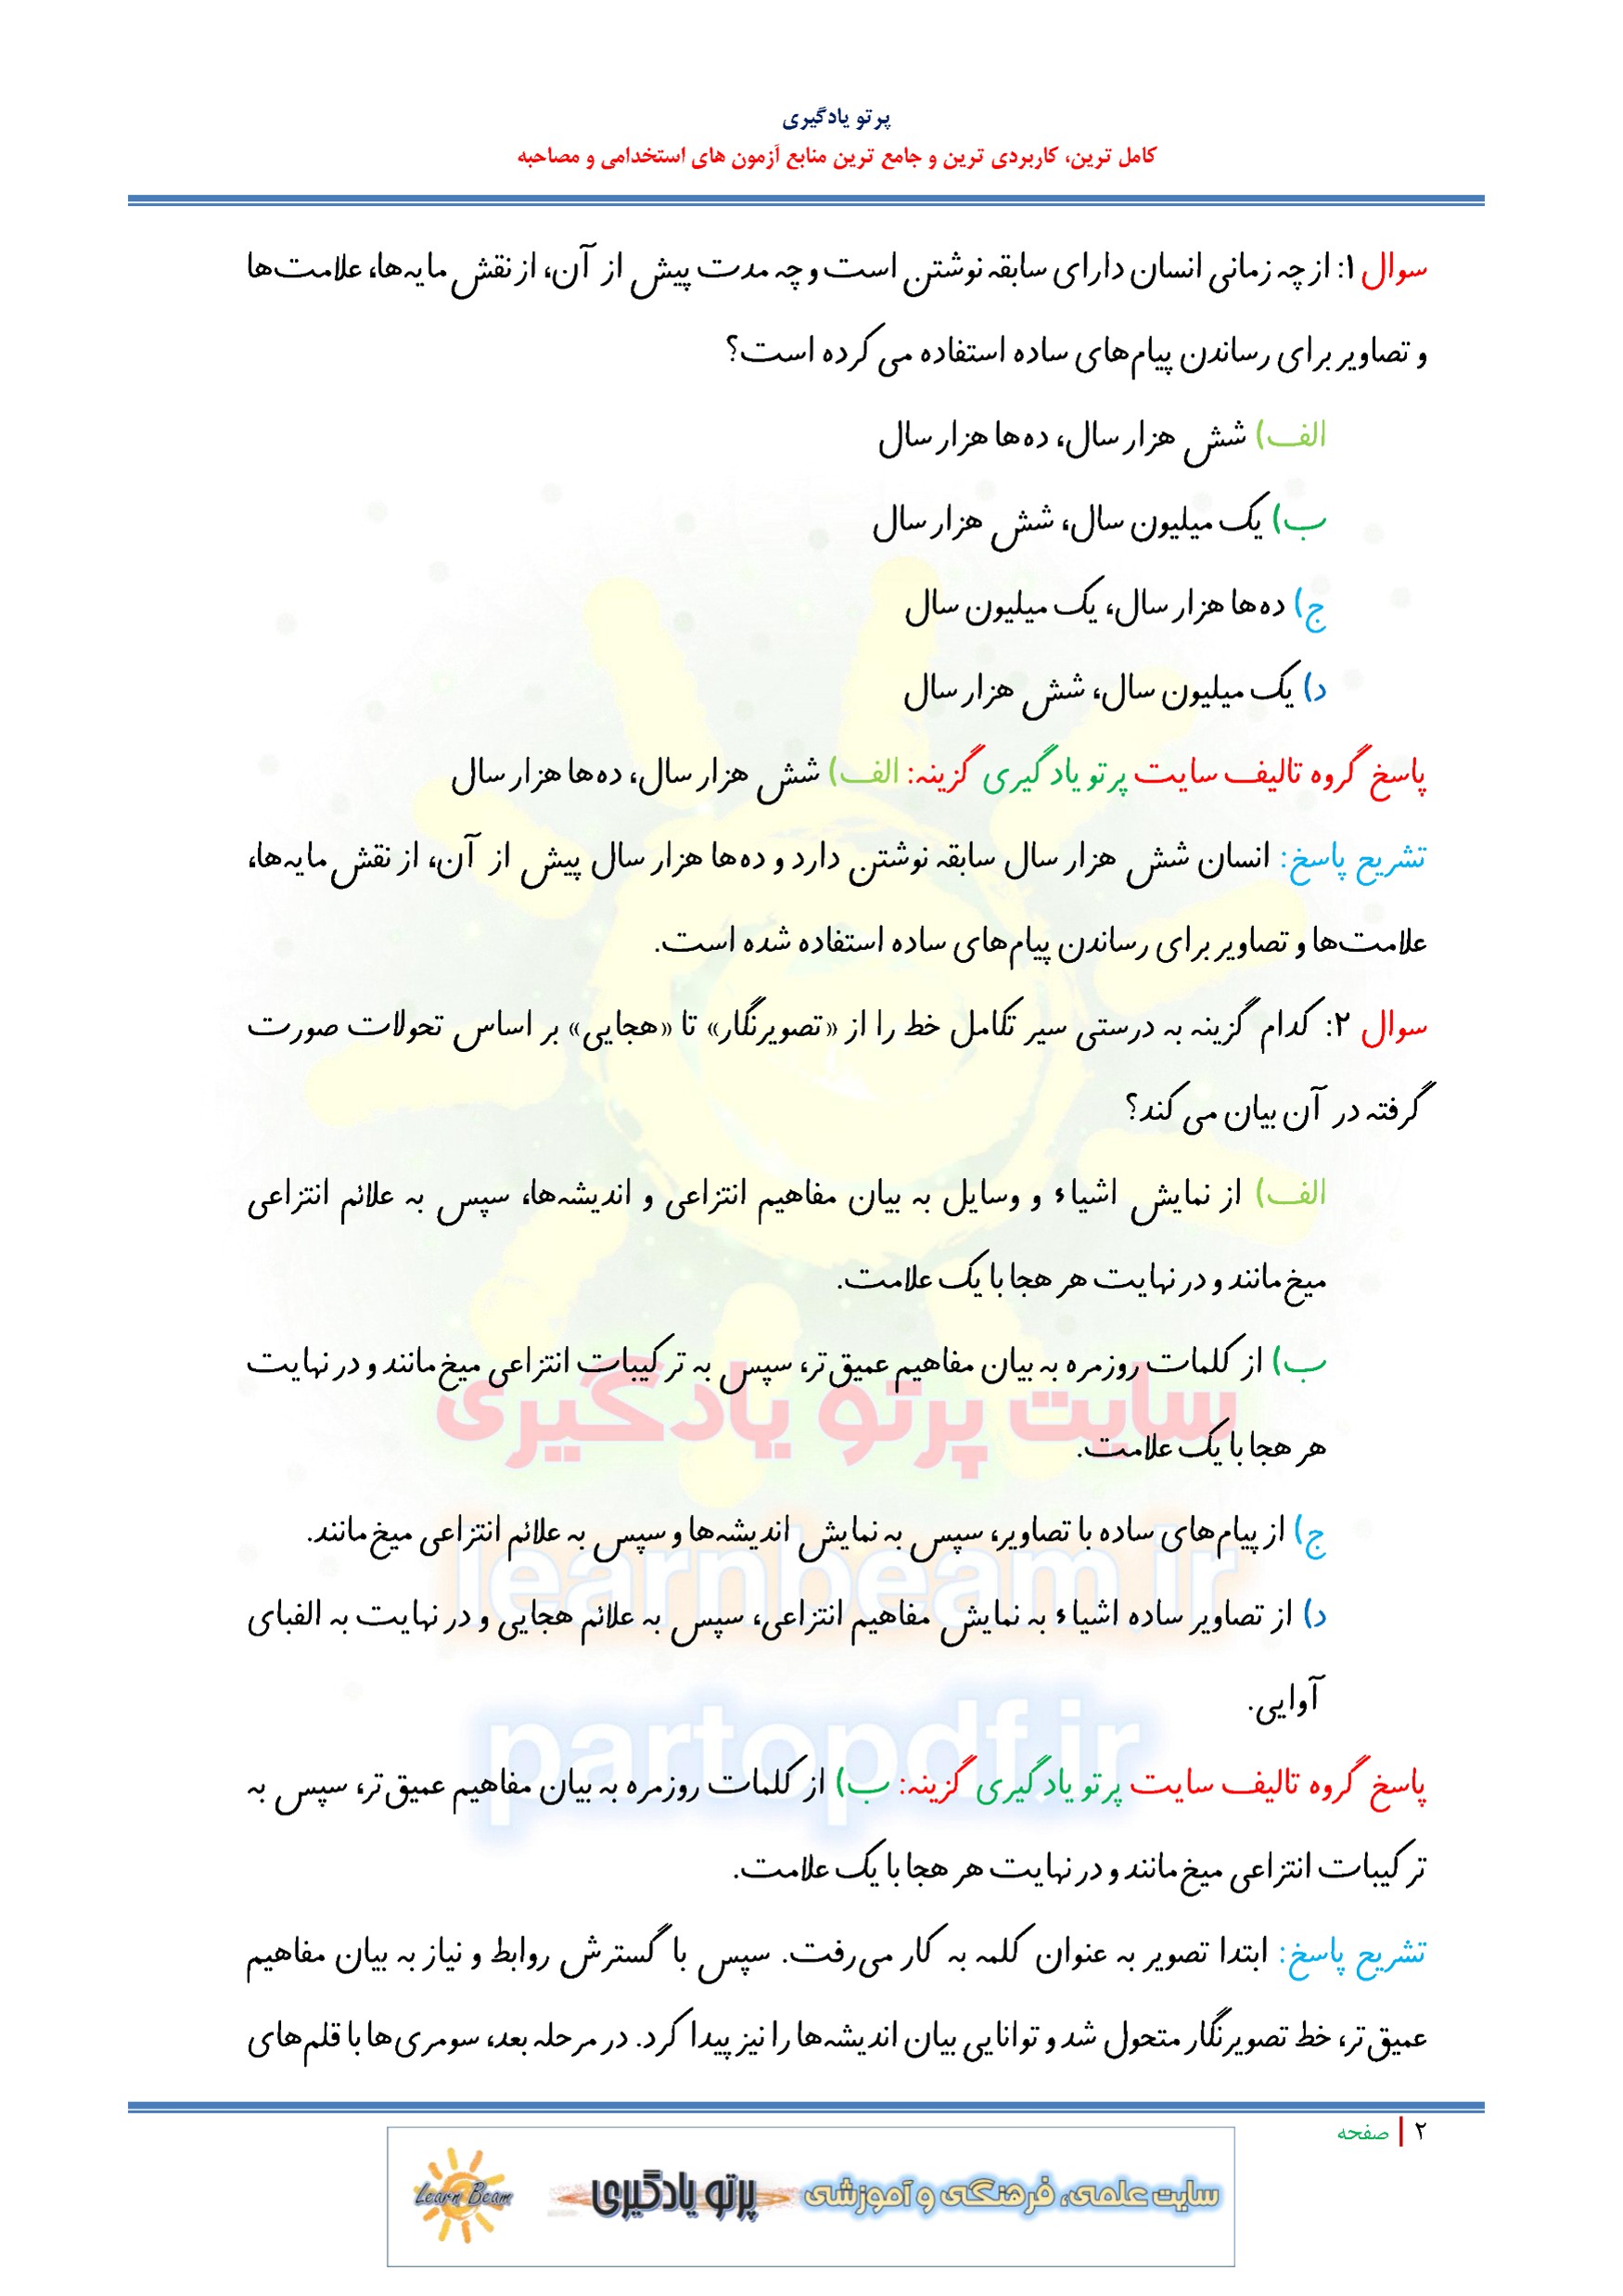 پرتو یادگیری
کامل ترین، کاربردی ترین و جامع ترین منابع آزمون های استخدامی و مصاحبه
سوال ۱: از چه زمانی انسان دارای سابقه نوشتن است و چه مدت پیش از آن، از نقش مایه‌ها، علامت‌ها
و تصاویر برای رساندن پیام‌های ساده استفاده می کرده است؟
الف) شش هزار سال، ده‌ها هزار سال
ب) یک میلیون سال، شش هزار سال
ج) ده‌ها هزار سال، یک میلیون سال
د) یک میلیون سال، شش هزار سال
پاسخ گروه تالیف سایت پرتو یادگیری گزینه: الف) شش هزار سال، ده‌ها هزار سال
تشریح پاسخ: انسان شش هزار سال سابقه نوشتن دارد و ده‌ها هزار سال پیش از آن، از نقش مایه‌ها،
علامت‌ها و تصاویر برای رساندن پیام‌های ساده استفاده شده است.
سوال ۲: کدام گزینه به درستی سیر تکامل خط را از «تصویرنگار» تا «هجایی» بر اساس تحولات صورت
گرفته در آن بیان می کند؟
الف) از نمایش اشیاء و وسایل به بیان مفاهیم انتزاعی و اندیشه‌ها، سپس به علائم انتزاعی
میخ‌مانند و در نهایت هر هجا با یک علامت.
ب) از کلمات روزمره به بیان مفاهیم عمیق‌تر، سپس به ترکیبات انتزاعی میخ‌مانند و در نهایت
هر هجا با یک علامت.
ج) از پیام‌های ساده با تصاویر، سپس به نمایش اندیشه‌ها و سپس به علائم انتزاعی میخ‌مانند.
د) از تصاویر ساده اشیاء به نمایش مفاهیم انتزاعی، سپس به علائم هجایی و در نهایت به الفبای
آوایی.
پاسخ گروه تالیف سایت پرتو یادگیری گزینه: ب) از کلمات روزمره به بیان مفاهیم عمیق‌تر، سپس به
ترکیبات انتزاعی میخ‌مانند و در نهایت هر هجا با یک علامت.
تشریح پاسخ: ابتدا تصویر به عنوان کلمه به کار می‌رفت. سپس با گسترش روابط و نیاز به بیان مفاهیم
عمیق‌تر، خط تصویرنگار متحول شد و توانایی بیان اندیشه‌ها را نیز پیدا کرد. در مرحله بعد، سومری‌ها با قلم‌های
سایت پرتو یادگیری
learnbeam.ir
partopdf.ir
۲ | صفحه
سایت علمی، فرهنگی و آموزشی پرتو یادگیری Learn Beam